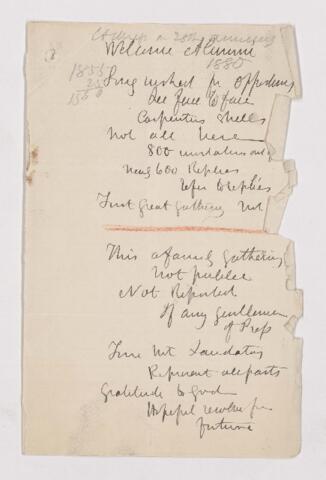 Address on 25th anniversary
Welcome Alumni
1880
1855
25
1880
Long wished for opportunity
See face to face
Carpenters shells
Not all here
800 invitations out
Nearly 600 Replies
Refer to replies
First great gathering
This a family gathering
Not public
Not Reported
If any gentlemen
of Press
Time Laudatory
Represent all parts
Gratitude to God
Hopeful resolve for
future